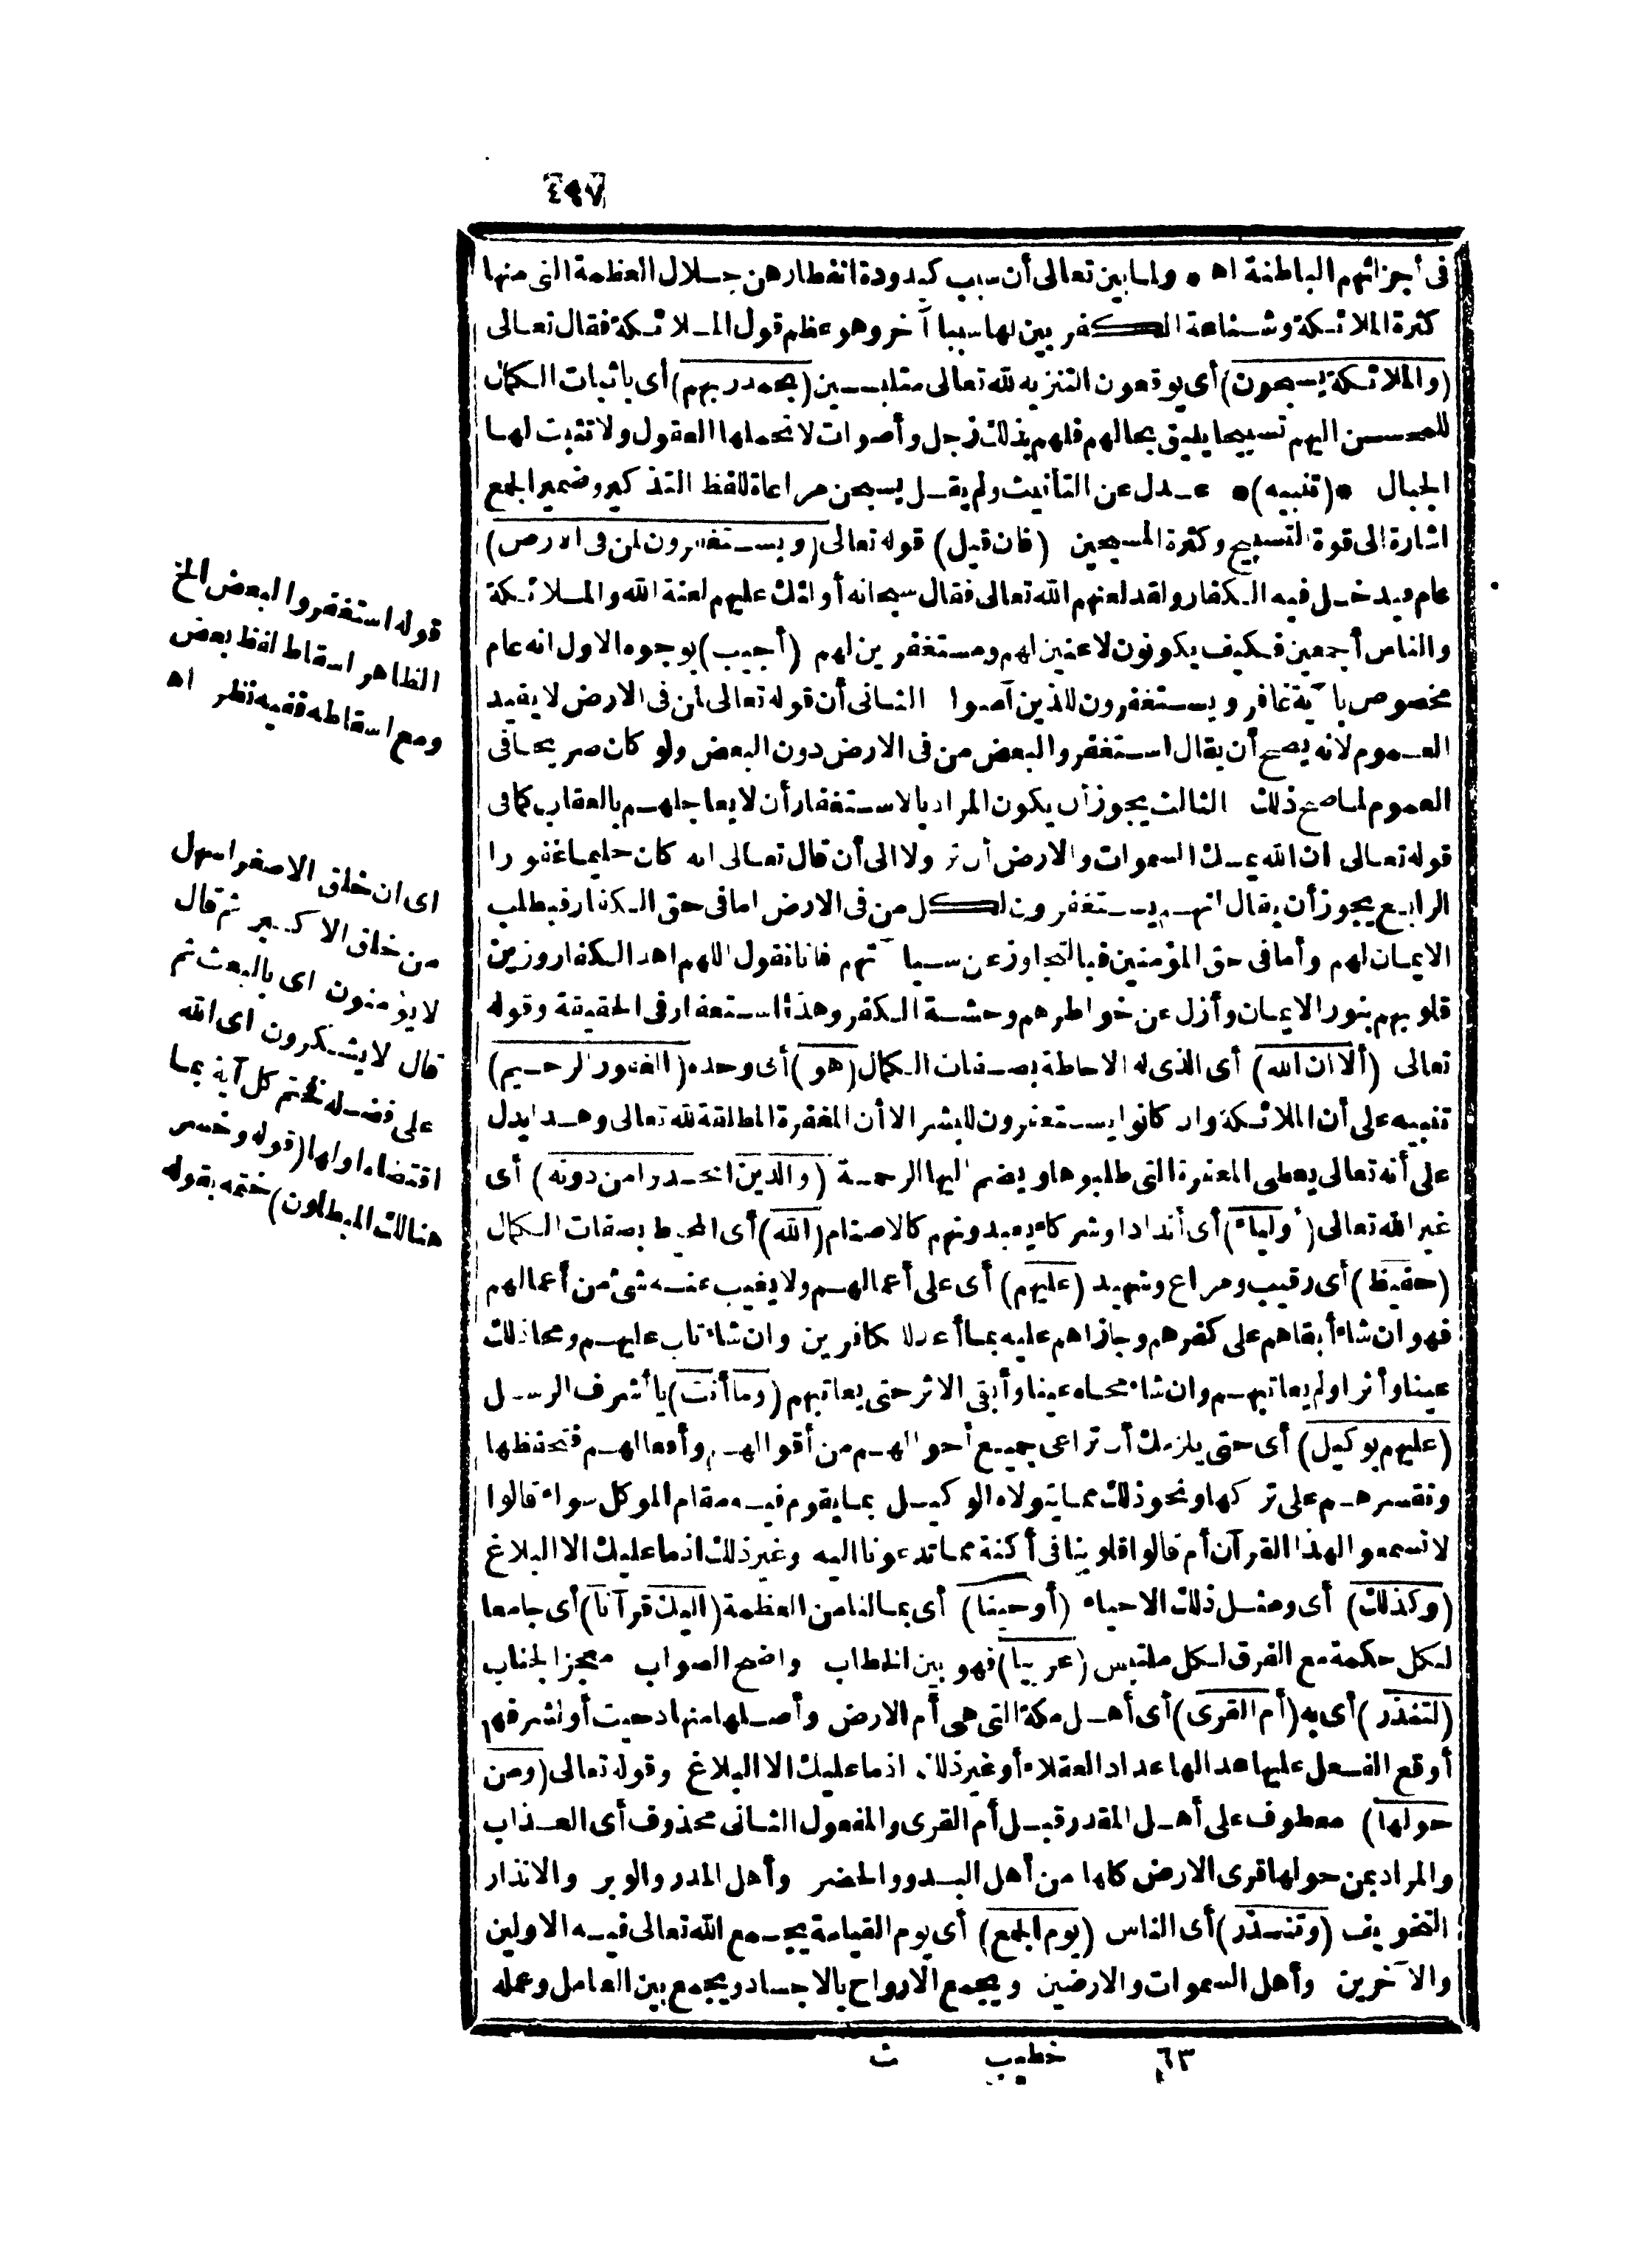 ٤٩٧
فى أجزائهم الباطنة اه • ولما بين تعالى أن سبب كيدودة انفطارهن جلال العظمة التى منها
كثرة الملائكة وشناعة الكفر بين لها سببا آخر وهو عظم قول الملائكة فقال تعالى
(والملائكة يسبحون) أى يوقعون التنزيه لله تعالى متلبسين (بحمد ربهم) أى باثبات الكمال
للمحسن اليهم تسبيحا يليق بحالهم فلهم بذلك زجل وأصوات لا تحملها العقول ولا تثبت لها
الجبال •(تنبيه)• عدل عن التأنيث ولم يقل يسبحن مراعاة للفظ التذكير وضمير الجمع
اشارة الى قوة التسبيح وكثرة المسبحين (فان قيل) قوله تعالى (ويستغفرون لمن فى الارض)
عام فيدخل فيه الكفار ولقد لعنهم الله تعالى فقال سبحانه أولئك عليهم لعنة الله والملائكة
والناس أجمعين فكيف يكونون لاعنين لهم ومستغفرين لهم (أجيب) بوجوه الاول انه عام
مخصوص بآية غافر ويستغفرون للذين آمنوا الثانى أن قوله تعالى لمن فى الارض لا يفيد
العموم لانه يصح أن يقال استغفروا لبعض من فى الارض دون البعض ولو كان صريحا فى
العموم لما صح ذلك الثالث يجوز أن يكون المراد بالاستغفار أن لا يعاجلهم بالعقاب كما فى
قوله تعالى ان الله يمسك السموات والارض أن تزولا الى أن قال تعالى انه كان حليما غفورا
الرابع يجوز أن يقال انهم يستغفرون لكل من فى الارض اما فى حق الكفار فبطلب
الايمان لهم وأما فى حق المؤمنين فبالتجاوز عن سيآتهم فانا نقول اللهم اهد الكفار وزين
قلوبهم بنور الايمان وأزل عن خواطرهم وحشة الكفر وهذا استغفار فى الحقيقة وقوله
تعالى (ألا ان الله) أى الذى له الاحاطة بصفات الكمال (هو) أى وحده (الغفور الرحيم)
تنبيه على أن الملائكة وان كانوا يستغفرون للبشر الا أن المغفرة المطلقة لله تعالى وهذا يدل
على أنه تعالى يعطى المغفرة التى طلبوها ويضم اليها الرحمة (والذين اتخذوا من دونه) أى
غير الله تعالى (أولياء) أى أندادا وشركاء يعبدونهم كالاصنام (الله) أى المحيط بصفات الكمال
(حفيظ) أى رقيب ومراع وشهيد (عليهم) أى على أعمالهم ولا يغيب عنه شئ من أعمالهم
فهو ان شاء أبقاهم على كفرهم وجازاهم عليه بما أعد للكافرين وان شاء تاب عليهم ومحا ذلك
عينا وأثرا ولم يعاتبهم وان شاء محاه عينا وأبقى الاثر حتى يعاتبهم (وما أنت) يا أشرف الرسل
(عليهم بوكيل) أى حتى يلزمك أن تراعى جميع أحوالهم من أقوالهم وأفعالهم فتحفظها
وتقسرهم على تركها ونحو ذلك مما يتولاه الوكيل بما يقوم فيه مقام الموكل سواء قالوا
لا تسمعوا لهذا القرآن أم قالوا قلوبنا فى أكنة مما تدعونا اليه وغير ذلك اذ ما عليك الا البلاغ
(وكذلك) أى ومثل ذلك الايحاء (أوحينا) أى بما لنا من العظمة (اليك قرآنا) أى جامعا
لكل حكمة مع الفرق لكل ملتبس (عربيا) فهو بين الخطاب واضح الصواب معجز الجناب
(لتنذر) أى به (أم القرى) أى أهل مكة التى هى أم الارض وأصلها منها دحيت أو لشرفها
أوقع الفعل عليها عدا لها عداد العقلاء أو غير ذلك اذ ما عليك الا البلاغ وقوله تعالى (ومن
حولها) معطوف على أهل المقدر قبل أم القرى والمفعول الثانى محذوف أى العذاب
والمراد بمن حولها قرى الارض كلها من أهل البدو والحضر وأهل المدر والوبر والانذار
التخويف (وتنذر) أى الناس (يوم الجمع) أى يوم القيامة يجمع الله تعالى فيه الاولين
والآخرين وأهل السموات والارضين ويجمع الارواح بالاجساد ويجمع بين العامل وعمله
٦٣ خطيب ث
قوله استغفروا لبعض الخ
الظاهر اسقاط لفظ بعض
ومع اسقاطه ففيه نظر اه
اى ان خلق الاصغر اسهل
من خلق الاكبر ثم قال
لا يؤمنون اى بالبعث ثم
قال لا يشكرون اى الله
على فضله فختم كل آية بما
اقتضاه اولها (قوله وخسر
هنالك المبطلون) ختمه بقوله